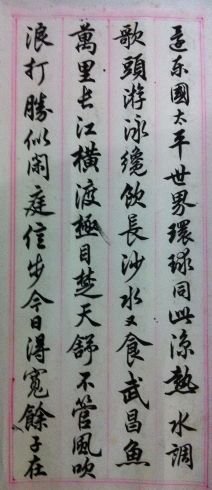 還东國太平世界環球同此涼熱 水調
歌頭游泳纔飲長沙水又食武昌魚
萬里长江橫渡極目楚天舒不管風吹
浪打勝似闲庭信步今日得寬餘子在